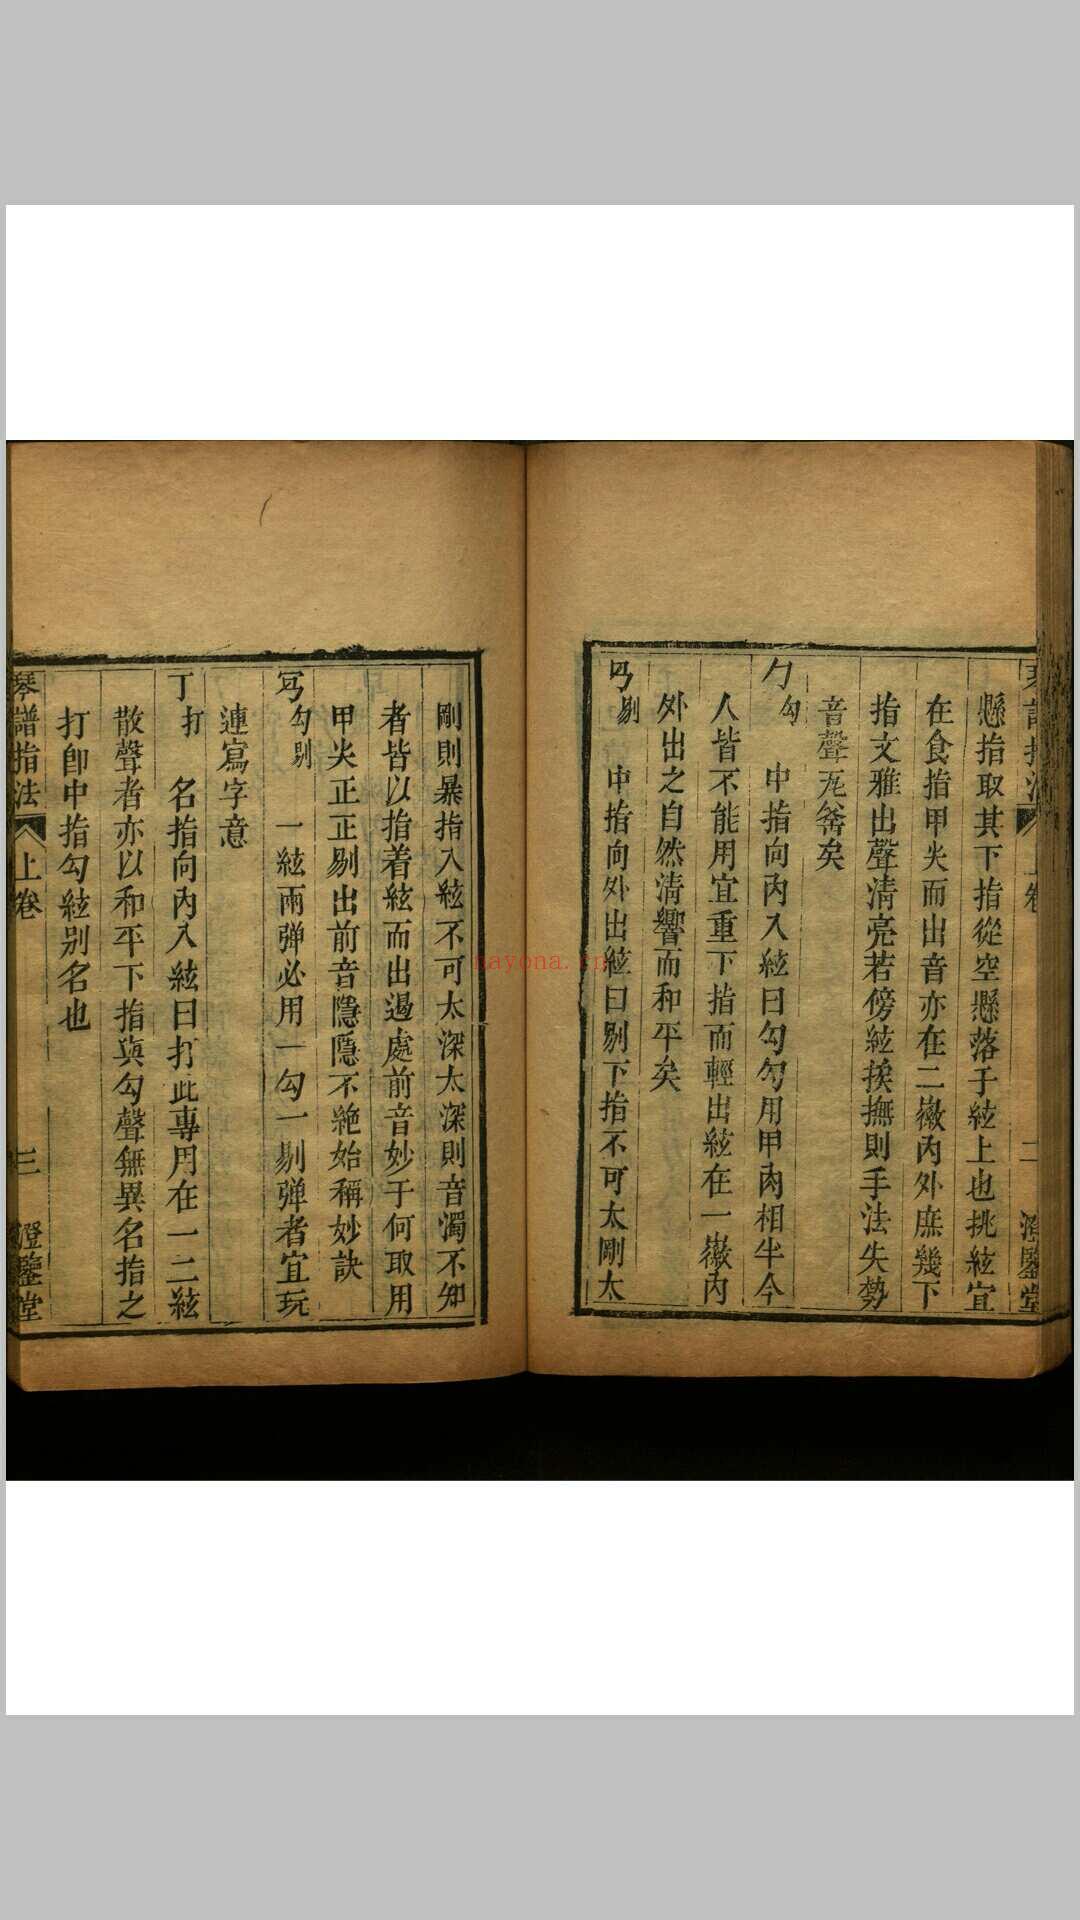 懸指取其下指從空懸落手絃上也挑絃宜
在食指甲尖而出音亦在二徽內外庶幾下
指文雅出聲清亮若傍絃挨撫則手法失勢
音聲𠒎矣
勹 勾 中指向內入絃曰勾勾用甲肉相半今
人皆不能用宜重下指而輕出絃在一徽內
外出之自然清響而和平矣
剔 中指向外出絃曰剔下指不可太剛太
二 澄鑒堂
剛則暴指入絃不可太深太深則音濁不知
者皆以指着絃而出過處前音妙于何取用
甲尖正正剔出前音隱隱不絶始稱妙訣
勾剔 一絃兩弹必用一勾一剔弹者宜玩
連寫字意
丁 打 名指向內入絃曰打此專用在一二絃
散聲者亦以和平下指與勾聲無異名指之
打即中指勾絃别名也
琴譜指法 上卷 三 澄鑒堂
nayona.cn